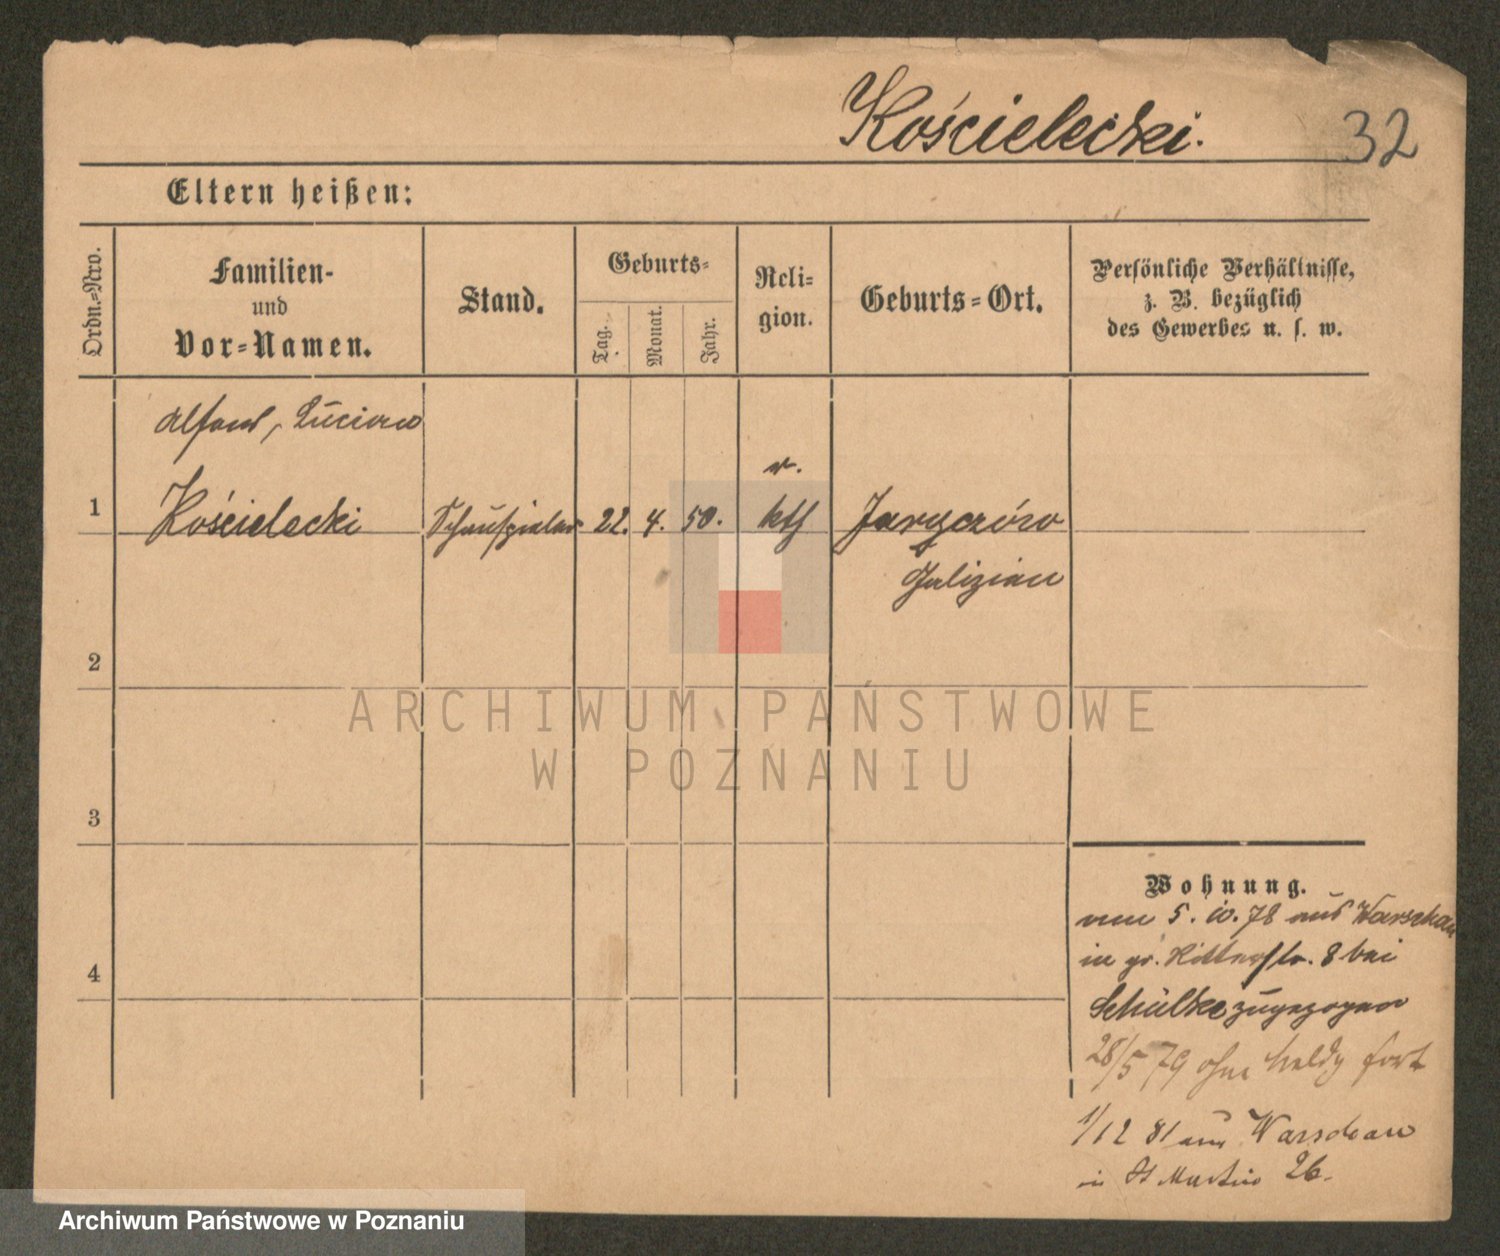 Kościelecki.
32
Eltern heißen:
Ordn.-Nro.
Familien-
und
Vor-Namen.
Stand.
Geburts-
Tag.
Monat.
Jahr.
Reli-
gion.
Geburts-Ort.
Persönliche Verhältnisse,
z. B. bezüglich
des Gewerbes u. s. w.
Alfons, Lucian
1 Kościelecki Schauspieler 22. 4. 50. r. kth Jaryczów
Galizien
2
3
4
Wohnung.
vom 5. 10. 78 aus Warschau
in gr. Ritterstr. 8 bei
Schultze zugezogen
28/5 79 ohne Meldg fort
1/12 81 aus Warschau
in St Martin 26.
ARCHIWUM PAŃSTWOWE
W POZNANIU
Archiwum Państwowe w Poznaniu